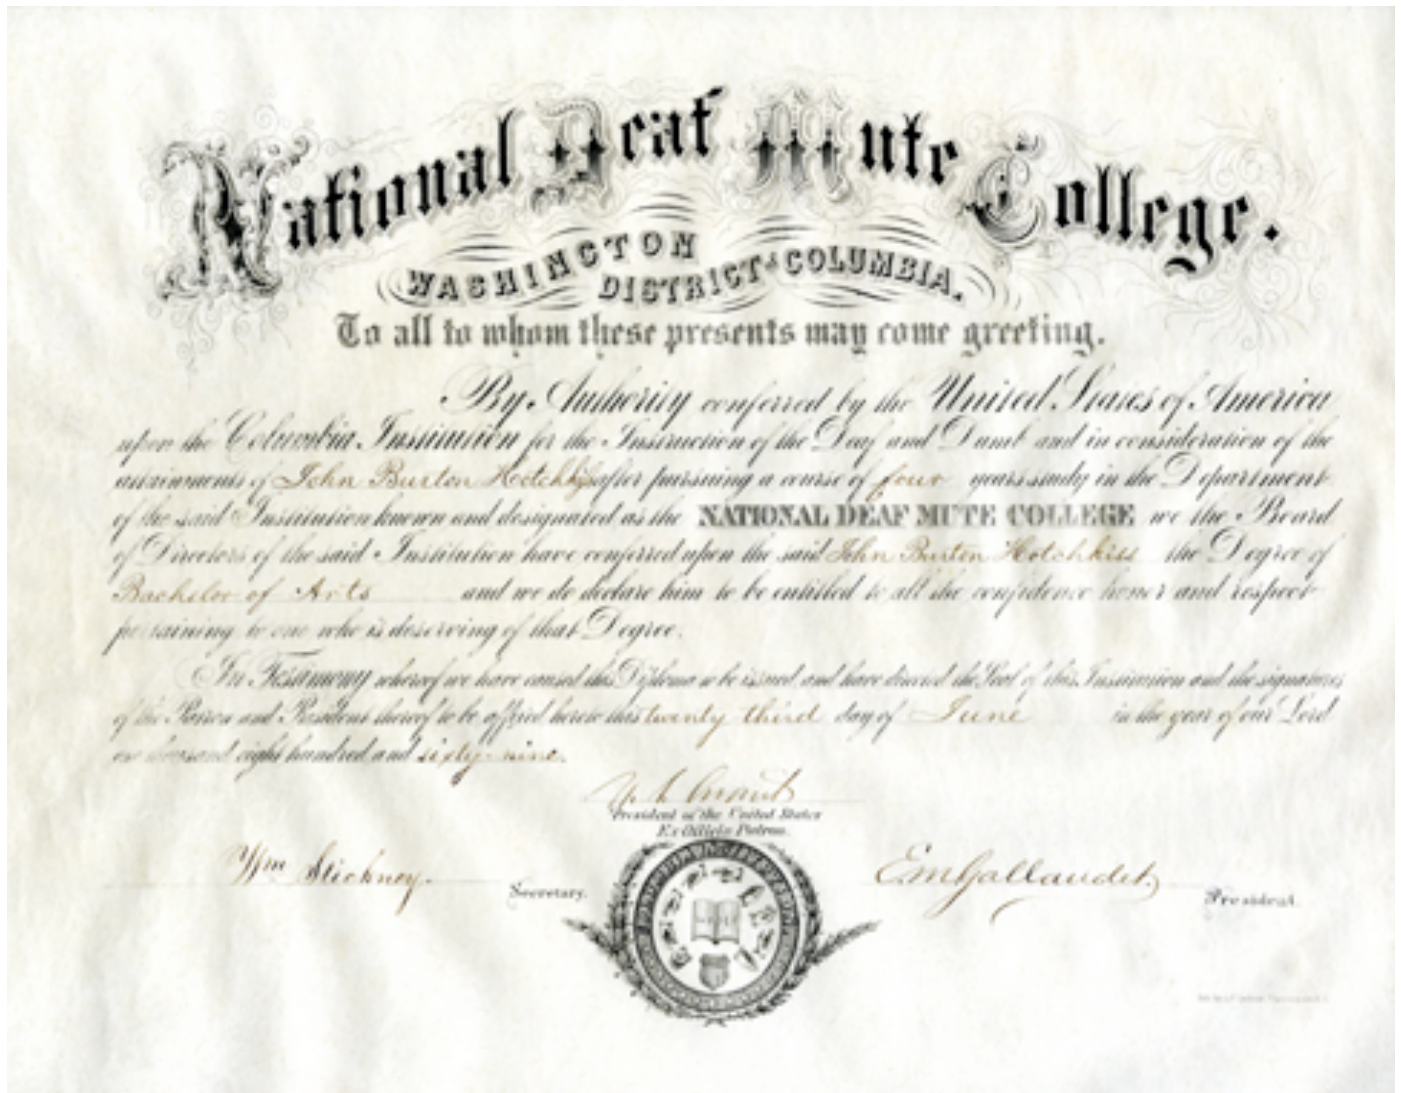 National Deaf Mute College.
WASHINGTON
DISTRICT OF COLUMBIA.
To all to whom these presents may come greeting.
By Authority conferred by the United States of America
upon the Columbia Institution for the Instruction of the Deaf and Dumb and in consideration of the
attainments of John Burton Hotchkiss after pursuing a course of four years study in the Department
of the said Institution known and designated as the NATIONAL DEAF MUTE COLLEGE we the Board
of Directors of the said Institution have conferred upon the said John Burton Hotchkiss the Degree of
Bachelor of Arts and we do declare him to be entitled to all the confidence honor and respect
pertaining to one who is deserving of that Degree.
In Testimony whereof we have caused this Diploma to be issued and have directed the Seal of this Institution and the signatures
of the Patron and President thereof to be affixed hereto this twenty third day of June in the year of our Lord
one thousand eight hundred and sixty-nine.
U. S. Grant
President of the United States
Ex Officio Patron.
Wm Stickney. Secretary.
E M Gallaudet, President.